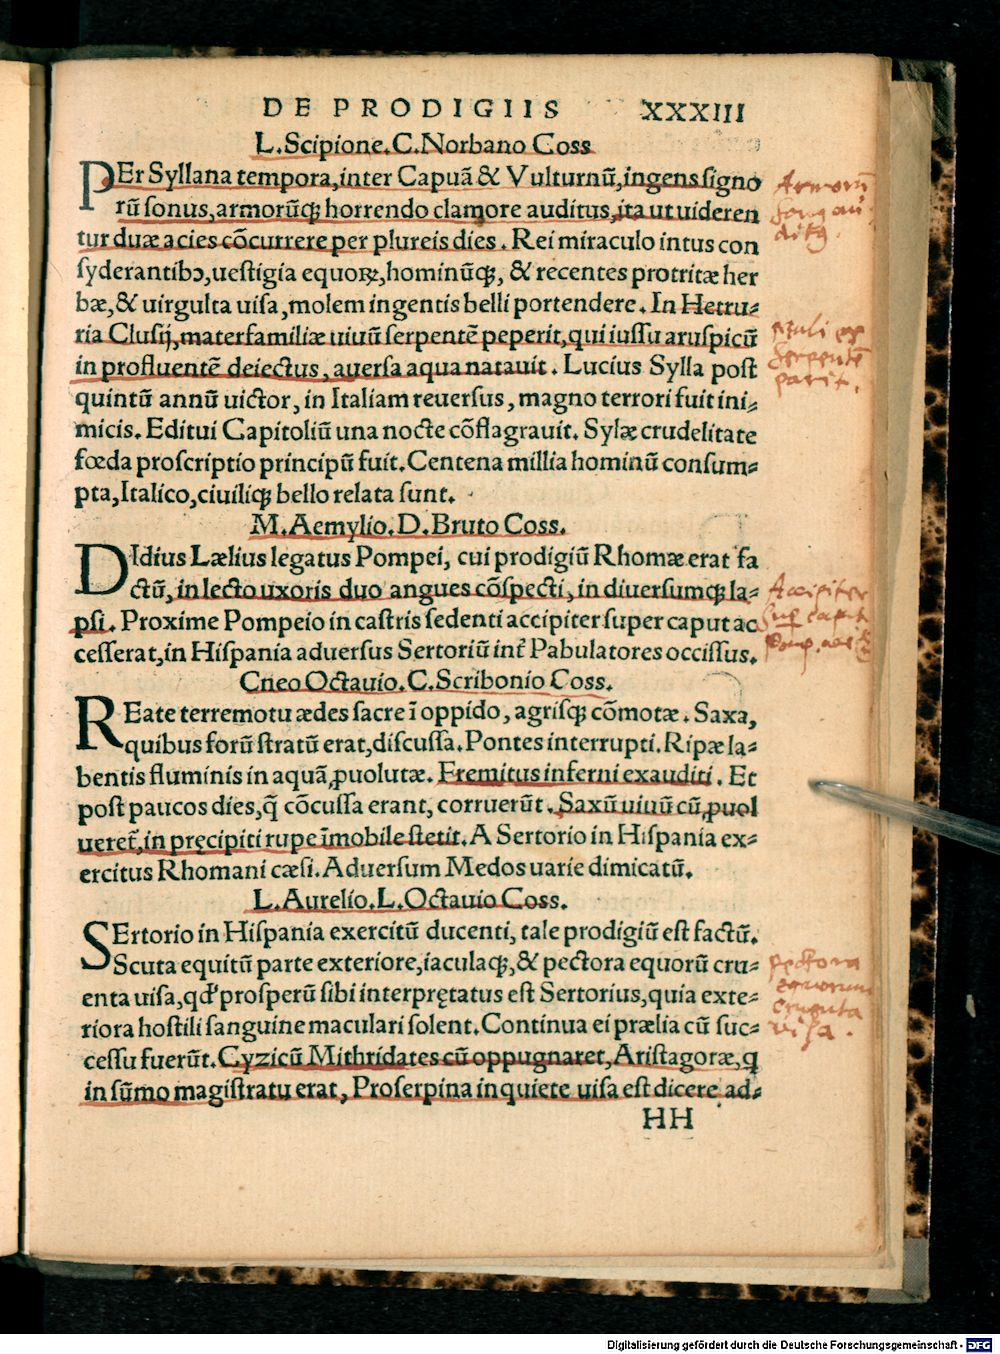 DE PRODIGIIS XXXIII
L.Scipione.C.Norbano Coss
PEr Syllana tempora,inter Capuā & Vulturnū,ingens signo
rū sonus,armorūqꝫ horrendo clamore auditus,ita ut uideren
tur duæ acies cōcurrere per plureis dies. Rei miraculo intus con
syderantibꝰ,uestigia equoꝝ,hominūqꝫ, & recentes protritæ her
bæ,& uirgulta uisa,molem ingentis belli portendere. In Hetru-
ria Clusij,materfamiliæ uiuū serpentē peperit,qui iussu aruspicū
in profluentē deiectus, auersa aqua natauit. Lucius Sylla post
quintū annū uictor, in Italiam reuersus, magno terrori fuit ini-
micis. Editui Capitoliū una nocte cōflagrauit. Sylæ crudelitate
fœda proscriptio principū fuit. Centena millia hominū consum-
pta,Italico,ciuiliqꝫ bello relata sunt.
M.Aemylio.D.Bruto Coss.
DIdius Lælius legatus Pompei, cui prodigiū Rhomæ erat fa
ctū, in lecto uxoris duo angues cōspecti, in diuersumqꝫ la-
psi. Proxime Pompeio in castris sedenti accipiter super caput ac
cesserat,in Hispania aduersus Sertoriū int̄ Pabulatores occissus.
Cneo Octauio.C.Scribonio Coss.
REate terremotu ædes sacre ī oppido, agrisqꝫ cōmotæ. Saxa,
quibus forū stratū erat,discussa. Pontes interrupti. Ripæ la-
bentis fluminis in aquā,ꝓuolutæ. Fremitus inferni exauditi. Et
post paucos dies,q̄ cōcussa erant, corruerūt. Saxū uiuū cū,ꝓuol
ueret̄,in pręcipiti rupe īmobile stetit. A Sertorio in Hispania ex-
ercitus Rhomani cæsi. Aduersum Medos uarie dimicatū.
L.Aurelio.L.Octauio Coss.
SErtorio in Hispania exercitū ducenti, tale prodigiū est factū.
Scuta equitū parte exteriore,iaculaqꝫ,& pectora equorū cru-
enta uisa,qd' prosperū sibi interprętatus est Sertorius,quia exte-
riora hostili sanguine maculari solent. Continua ei prælia cū suc-
cessu fuerūt. Cyzicū Mithridates cū oppugnaret, Aristagoræ, q
in sūmo magistratu erat, Proserpina in quiete uisa est dicere ad-
HH
Armorū
serpentē
parit.
Accipiter
sup caput
pectora
equorum
cruenta
visa.
Digitalisierung gefördert durch die Deutsche Forschungsgemeinschaft - DFG